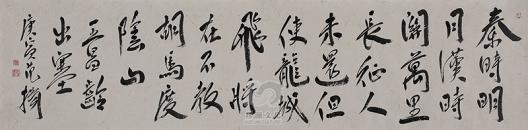 秦時明
月漢時
關萬里
長征人
未還但
使龍城
飛將
在不教
胡馬度
陰山
王昌齡
出塞
庚寅范揚